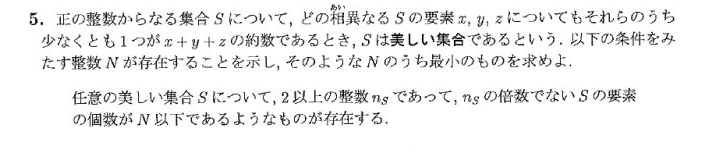 あい
5. 正の整数からなる集合 S について, どの相異なる S の要素 x, y, z についてもそれらのうち
少なくとも 1 つが x + y + z の約数であるとき, S は美しい集合であるという. 以下の条件をみ
たす整数 N が存在することを示し, そのような N のうち最小のものを求めよ.
任意の美しい集合 S について, 2 以上の整数 nS であって, nS の倍数でない S の要素
の個数が N 以下であるようなものが存在する.